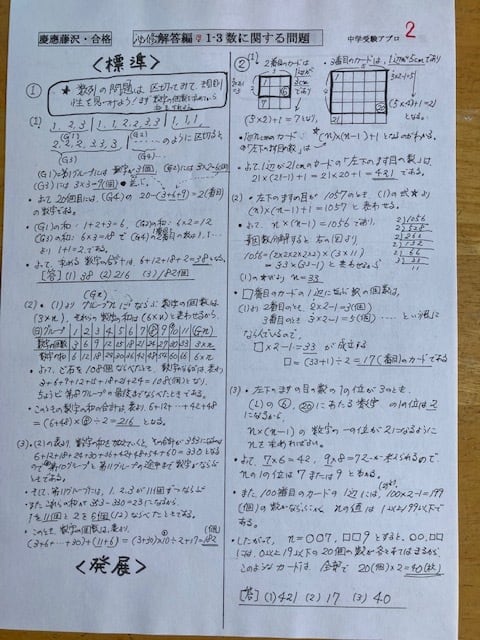 慶應藤沢・合格
必修解答編 1-3 数に関する問題
中学受験アプロ
2
<標準>
①
★ 数列の問題は、区切ってみて、規則
性を見つけよう!
(1)
1, 2, 3 / 1, 1, 2, 2, 3, 3 / 1, 1, 1,
(G1) (G2)
2, 2, 2, 3, 3, 3 / と区切ると、
(G3) (G4)
(G1)=第1グループには 数字が3個 (G2)には 3×2=6個
(G3)には 3×3=9(個)
よって 20個目には、(G4)の 20-(3+6+9)=2(番目)
の数字である。
(G1)の和: 1+2+3=6, (G2)の和: 6×2=12
(G3)の和: 6×3=18 で (G4)の2番目の和は、
より 1+1=2 である。
よって、求める 数字の合計は、6+12+18+2=38
[答] (1) 38 (2) 216 (3) 182個
(Gn)
(2)・(1)より グループnにならぶ 数字の個数は、
(3×n), それらの数字の和は (6×n) と表わせるから、
グループ 1 2 3 4 5 6 7 8 9 10 11 (Gn)
数字の個数 3 6 9 12 15 18 21 24 27 30 33 3×n
数字の和 6 12 18 24 30 36 42 48 54 60 66 6×n
3+6+9+12+15+18+21+24=108(個)となり、
ちょうど 第8グループの最後までならべたときである。
・このときの数字の和の合計は、6+12+…+42+48
=(6+48)×8÷2=216 となる。
(3)・(2)の表より、
6+12+18+24+30+36+42+48+54+60=330 となる
ので 第10グループと 第11グループの途中まで 数字がならぶ
ときである。
・そして、第11グループは、1, 2, 3が 11個ずつならぶ
353-330=23 になるから、
1を11個と 2を6個(12)ならべたときである。
(3+6+…+30)+(11+6)=(3+30)×10÷2+17=182
(個)
<発展>
②
(1)
・2番目のカードは
1辺が3cm
・3番目のカードは、1辺が5cm
であり
3×2-1=5
(3×2)+1=7 となり、
(5×4)+1=21
となる。
・1辺ncmのカード
★
(n)×(n-1)+1 となるのがわかる。
「左下の数」は
・よって 1辺が21cmのカードの「左下のます目の数」は、
21×(21-1)+1=21×20+1=421 である。
(2)・左下のます目が 1057のとき、(1)の式★より
(n)×(n-1)+1=1057 と表わせる。
よって、n×(n-1)=1056 であり、
素因数分解すると 右の図より
1056=(2×2×2×2×2)×(3×11)
=33×(33-1) と表わせるから
(1)の★より n=33
2)1056
2)528
2)264
2)132
2)66
3)33
11
・□番目のカードの 1辺にならぶ 数の個数は、
(1)より 2番目のとき 2×2-1=3(個)
3番目のとき 3×2-1=5(個) … という風に
なっているので、
□×2-1=33 が 成立する
□=(33+1)÷2=17(番目)のカードである
(3)・左下のます目の数の1の位が3のとき、
(2)の
にあたる 数字 の1の位は 2
になるから
n×(n-1) の 数字の一の位が 2になるように
nを求めればよい。
・よって、7×6=42, 9×8=72 が考えられるので
nの1の位は 7または9 と もわかる。
・また、100番目のカードの 1辺には、100×2-1=199
(個)の数がならぶから nの値は 1以上199以下で
ある。
・したがって、n=○○7, □□9 とすると、○○, □□
には、0以上19以下の 20個の数が 各々あてはまるから
このようなカードは、全部で 20(個)×2=40(枚)
[答] (1) 421 (2) 17 (3) 40